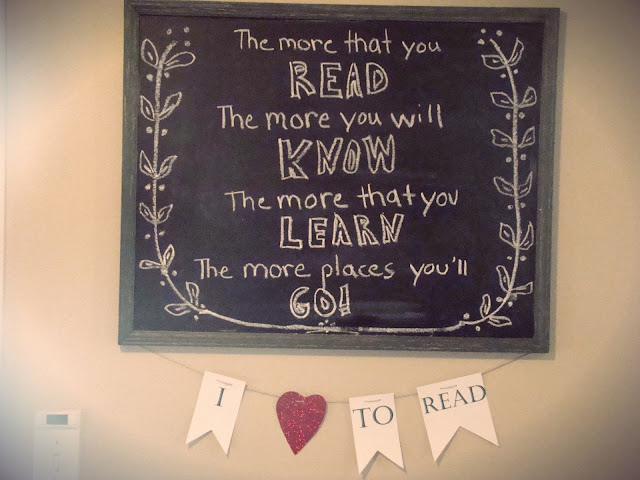 The more that you
READ
The more you will
KNOW
The more that you
LEARN
The more places you'll
GO!
I TO READ